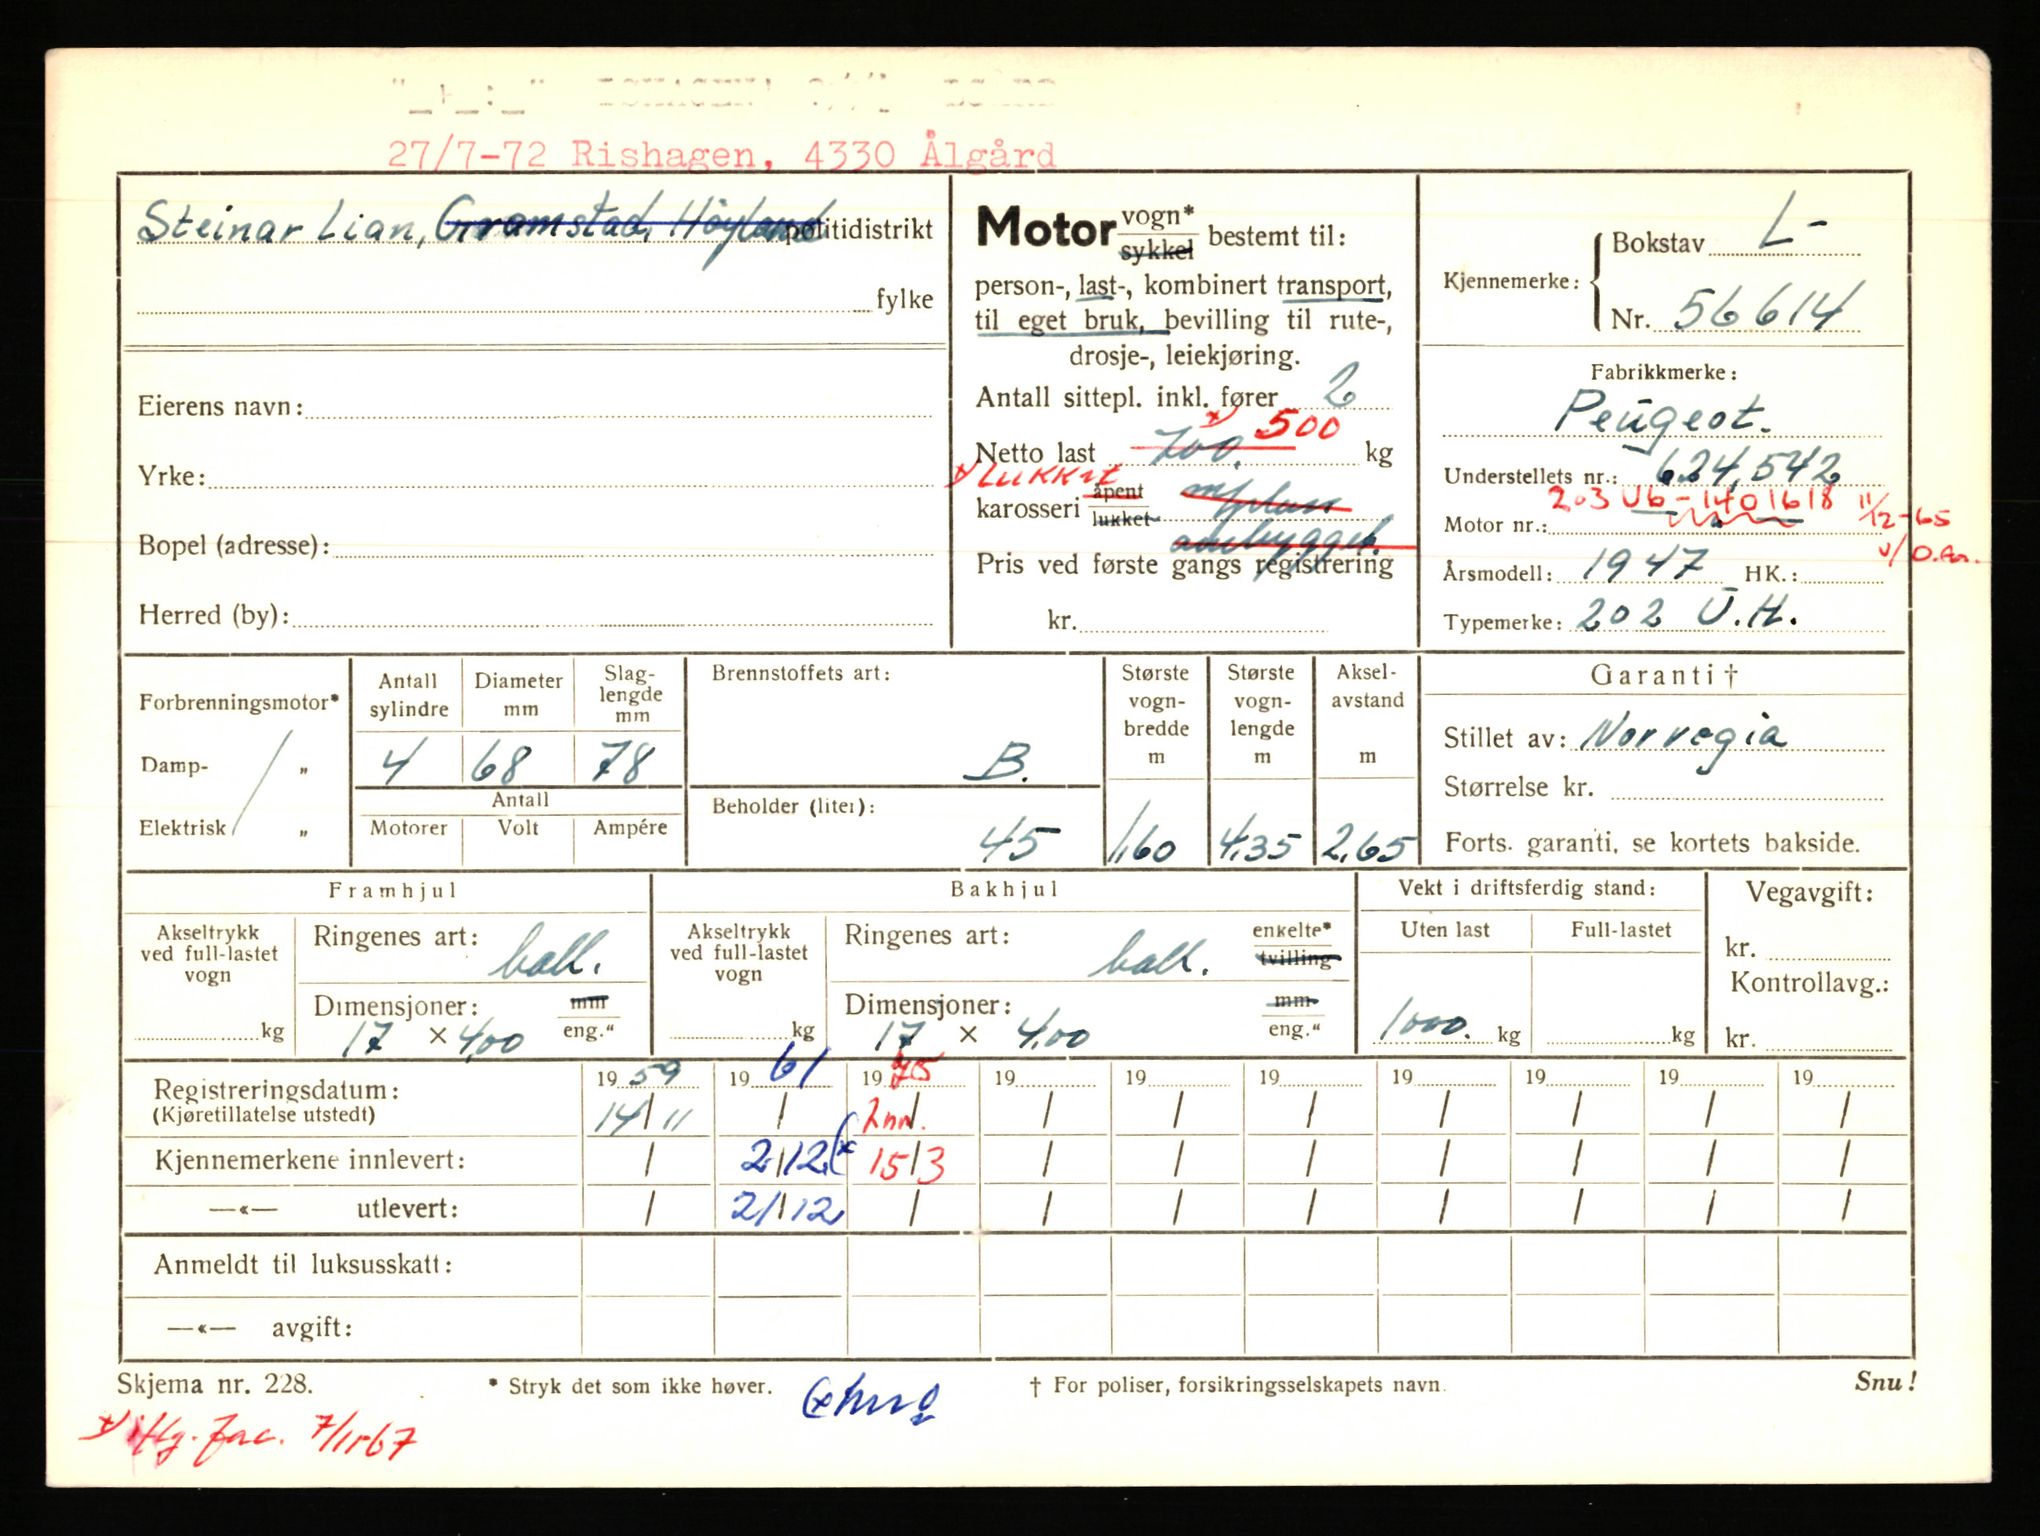 27/7-72 Rishagen, 4330 Ålgård
Steinar Lian, Gramstad, Höyland politidistrikt
fylke
Eierens navn:
Yrke:
Bopel (adresse):
Herred (by):
Motor vogn* sykkel bestemt til:
person-, last-, kombinert transport,
til eget bruk, bevilling til rute-,
drosje-, leiekjøring.
Antall sittepl. inkl. fører 2
x) 500
Netto last 700. kg
x) LUKKET
karosseri åpent lukket m/plan
ombygget.
Pris ved første gangs registrering
kr.
Kjennemerke: Bokstav L-
Nr. 56614
Fabrikkmerke:
Peugeot.
Understellets nr.: 624,542
203 U6-1401618 11/12-65
Motor nr.:
Årsmodell: 1947 HK.:
Typemerke: 202 U.H.
Forbrenningsmotor*
Damp- „
Elektrisk „
Antall sylindre
Diameter mm
Slag-lengde mm
4 68 78
Antall
Motorer Volt Ampére
Brennstoffets art:
B.
Beholder (liter):
45
Største vogn-bredde m
1,60
Største vogn-lengde m
4,35
Aksel-avstand m
2,65
Garanti †
Stillet av: Norvegia
Størrelse kr.
Forts. garanti, se kortets bakside.
Framhjul
Akseltrykk ved full-lastet vogn
kg
Ringenes art: ball.
Dimensjoner: mm
17 × 4,00 eng."
Bakhjul
Akseltrykk ved full-lastet vogn
kg
Ringenes art: ball. enkelte* tvilling
Dimensjoner: mm
17 × 4.00 eng."
Vekt i driftsferdig stand:
Uten last Full-lastet
1000. kg kg
Vegavgift:
kr.
Kontrollavg.:
kr.
Registreringsdatum: 19 59 19 61 19 75 19 19 19 19 19 19 19
(Kjøretillatelse utstedt) 14/11 / / / / / / / / /
Kjennemerkene innlevert: / 2/12 15/3 / / / / / / /
—«— utlevert: / 2/12 / / / / / / / /
Anmeldt til luksusskatt:
—«— avgift:
Skjema nr. 228.
* Stryk det som ikke høver.
† For poliser, forsikringsselskapets navn.
Snu!